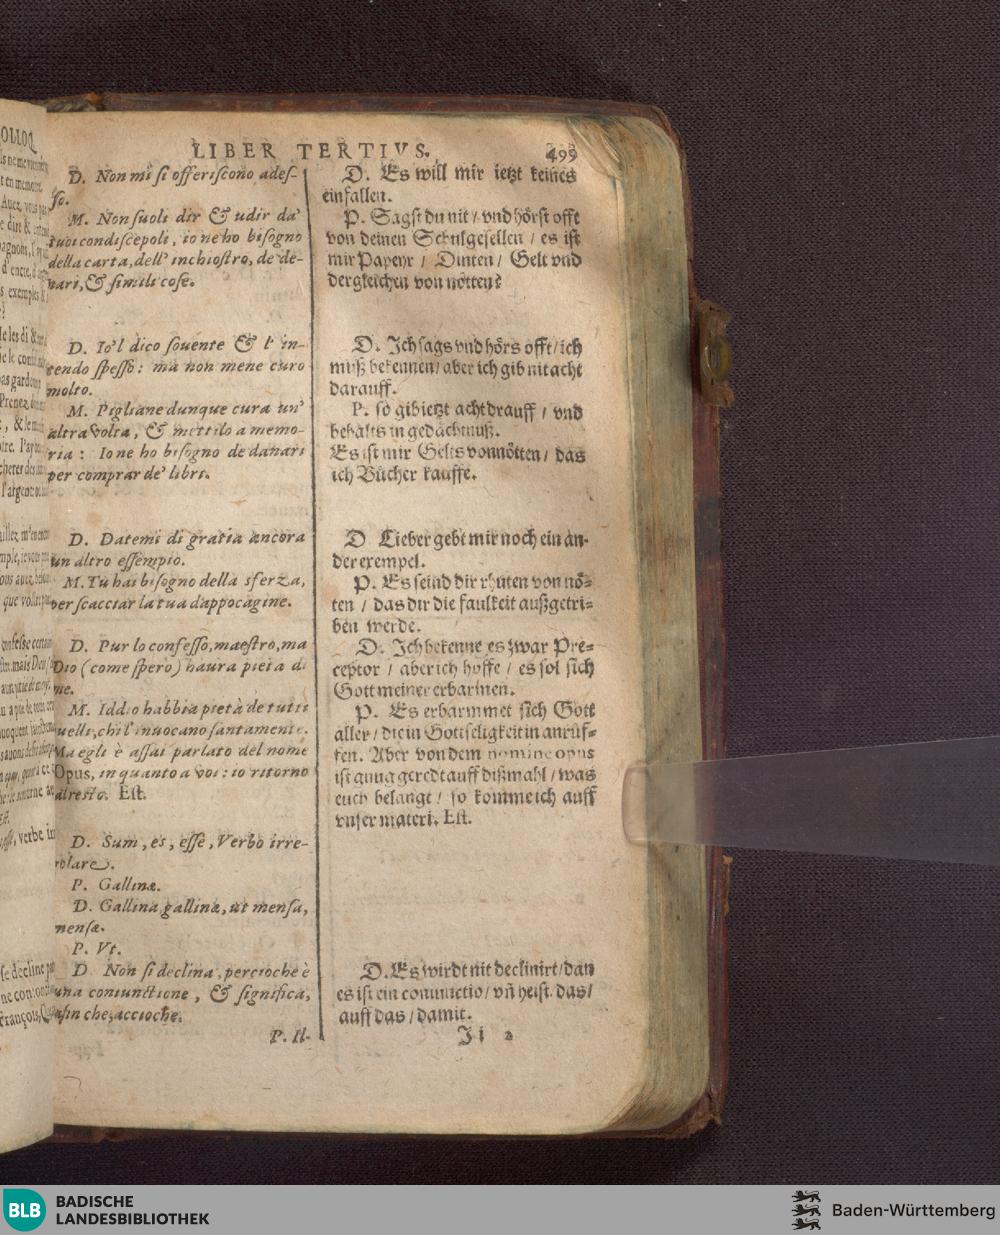 LIBER TERTIVS. 499
D. Non mi si offeriscono ades-
so.
M. Non suoli dir & udir da'
tuoi condiscepoli, io ne ho bisogno
della carta, dell' inchiostro, de de-
nari, & simili cose.
D. Io'l dico sovente & l' in-
tendo spesso: ma non mene curo
molto.
M. Pigliane dunque cura un'
altra volta, & mettilo a memo-
ria: Io ne ho bisogno de danari
per comprar de' libri.
D. Datemi di gratia ancora
un altro essempio.
M. Tu hai bisogno della sferza,
per scacciar la tua dappocagine.
D. Pur lo confesso, maestro, ma
Dio (come spero) haura pieta di
me.
M. Iddio habbia pietà de tutti
quelli, chi l'invocano santamente.
Ma egli è assai parlato del nome
Opus, in quanto a voi: io ritorno
al resto. Est.
D. Sum, es, esse, Verbo irre-
golare.
P. Gallinæ.
D. Gallina gallinæ, ut mensa,
mensæ.
P. Vt.
D Non si declina, percioche è
una coniunctione, & significa,
afin che, accioche.
P. Il-
D. Es will mir ietzt keines
einfallen.
P. Sagst du nit / vnd hörst offt
von deinen Schulgesellen / es ist
mir Papeyr / Dinten / Gelt vnd
dergleichen von nötten?
D. Ich sags vnd hörs offt / ich
muß bekennen / aber ich gib nit acht
darauff.
P. so gib ietzt acht drauff / vnd
behalts in gedächtnuß.
Es ist mir Gelts vonnötten / das
ich Bücher kauffe.
D Lieber gebt mir noch ein an-
der exempel.
P. Es seind dir rhuten von nö-
ten / das dir die faulkeit außgetri-
ben werde.
D. Ich bekenne es zwar Pre-
ceptor / aber ich hoffe / es sol sich
Gott meiner erbarmen.
P. Es erbarmmet sich Gott
aller / die in Gottseligkeit in anrüf-
fen. Aber von dem nomine opus
ist gnug geredt auff dißmahl / was
euch belangt / so komme ich auff
vnser materi. Est.
D. Es wirdt nit declinirt / dan
es ist ein coniunctio / vñ heist. das /
auff das / damit.
Ii 2
BLB BADISCHE
LANDESBIBLIOTHEK
Baden-Württemberg